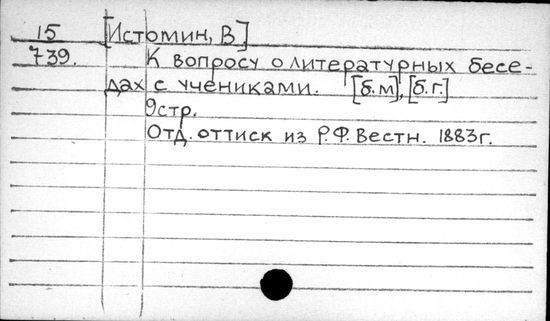 15 [Истомин, В]
739. К вопросу о литературных бесе-
дах с учениками. [б.м], [б.г.]
9стр.
Отд. оттиск из Р.Ф. Вестн. 1883г.